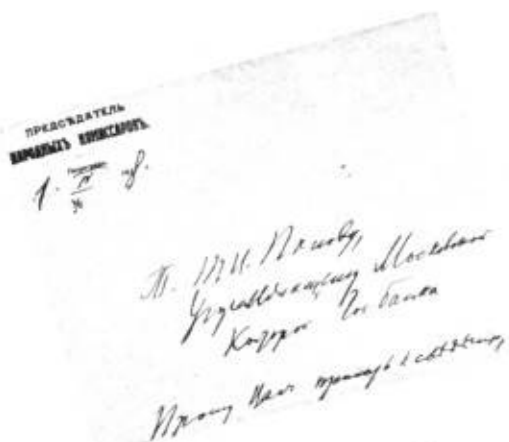 ПРЕДСѢДАТЕЛЬ
НАРОДНЫХЪ КОМИССАРОВЪ.
Т. Т.И. Попову,
Управляющему Московской
Конторой Гос банка
Прошу Вас принять к сведению,